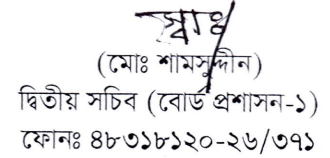 স্বাঃ
(মোঃ শামসুদ্দীন)
দ্বিতীয় সচিব (বোর্ড প্রশাসন-১)
ফোনঃ ৪৮৩১৮১২০-২৬/৩৭১